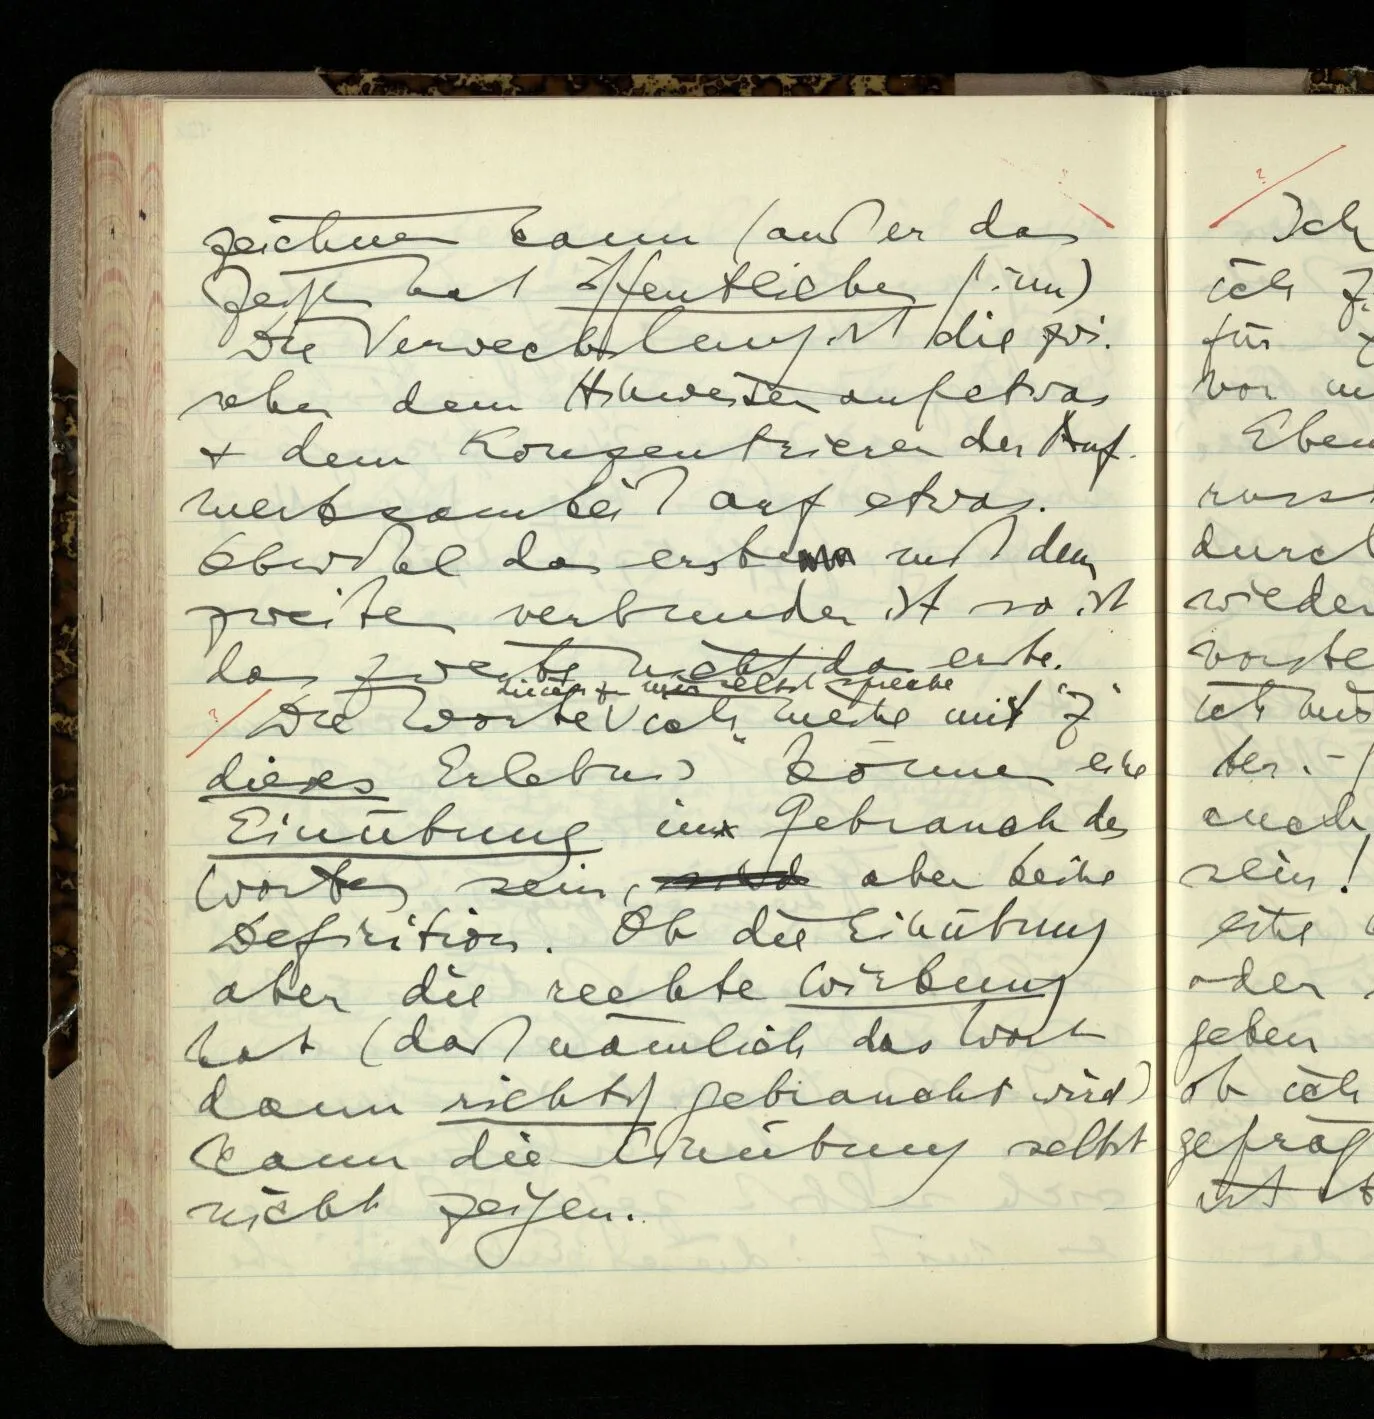 zeichnen kann (außer das
Zeigen hat öffentlichen Sinn)
Die Verwechslung ist die zwi-
schen dem Hinweisen auf etwas
+ dem Konzentrieren der Auf-
merksamkeit auf etwas.
Obwohl das erste mit dem
zweiten verbunden ist so ist
das zweite nicht das erste.
die ich zu mir selbst spreche
? Die Worte „ich meine mit 'Z'
dieses Erlebnis" können eine
Einübung im Gebrauch des
Wortes sein, sind aber keine
Definition. Ob die Einübung
aber die rechte Wirkung
hat (daß nämlich das Wort
dann richtig gebraucht wird)
kann die Einübung selbst
nicht zeigen.
? Ich
ich
für
vor
Eben
durch
wieder
vorste
ich
auch
sein!
eine
oder
geben
ob ich
gefrag
ist